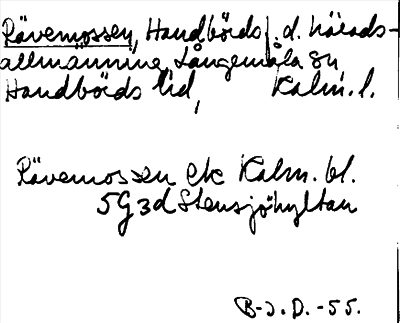 Rävemossen, Handbörds f.d. härads-
allmänning, Långemåla sn
Handbörds hd, Kalm. l.
Rävemossen ek Kalm. bl.
5G3d Stensjöhyltan
B-J. D. -55.